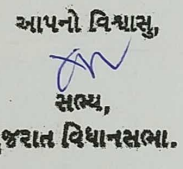 આપનો વિશ્વાસુ,
સભ્ય,
જરાત વિધાનસભા.